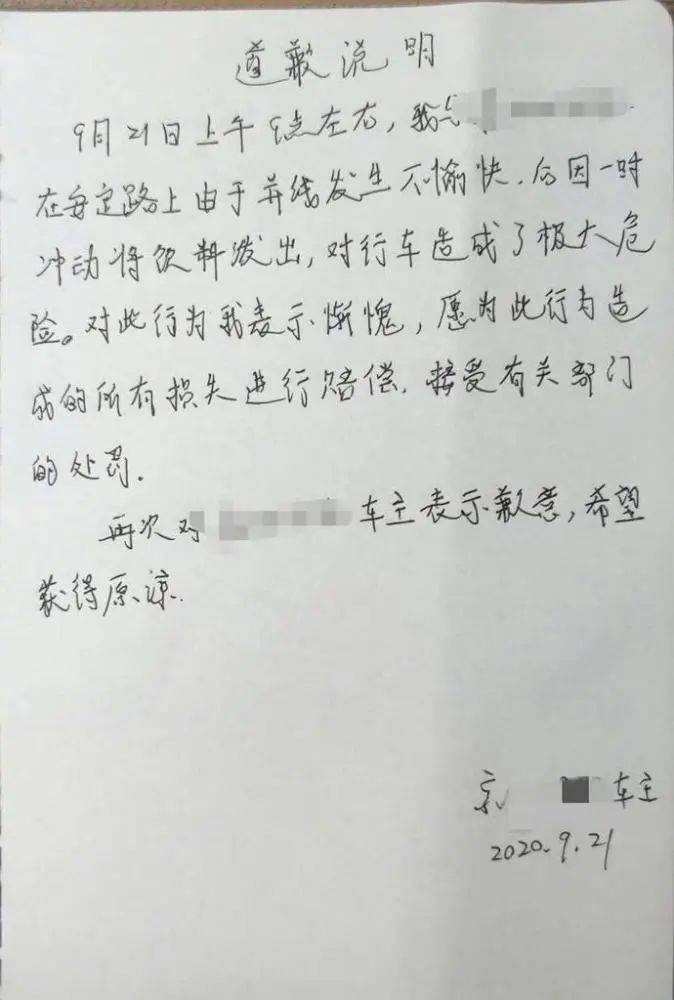 道歉说明
9月21日上午9点左右，我与
在安定路上由于并线发生不愉快，后因一时
冲动将饮料泼出，对行车造成了极大危
险。对此行为我表示惭愧，愿为此行为造
成的所有损失进行赔偿，接受有关部门
的处罚.
再次对 车主表示歉意，希望
获得原谅.
京 车主
2020.9.21